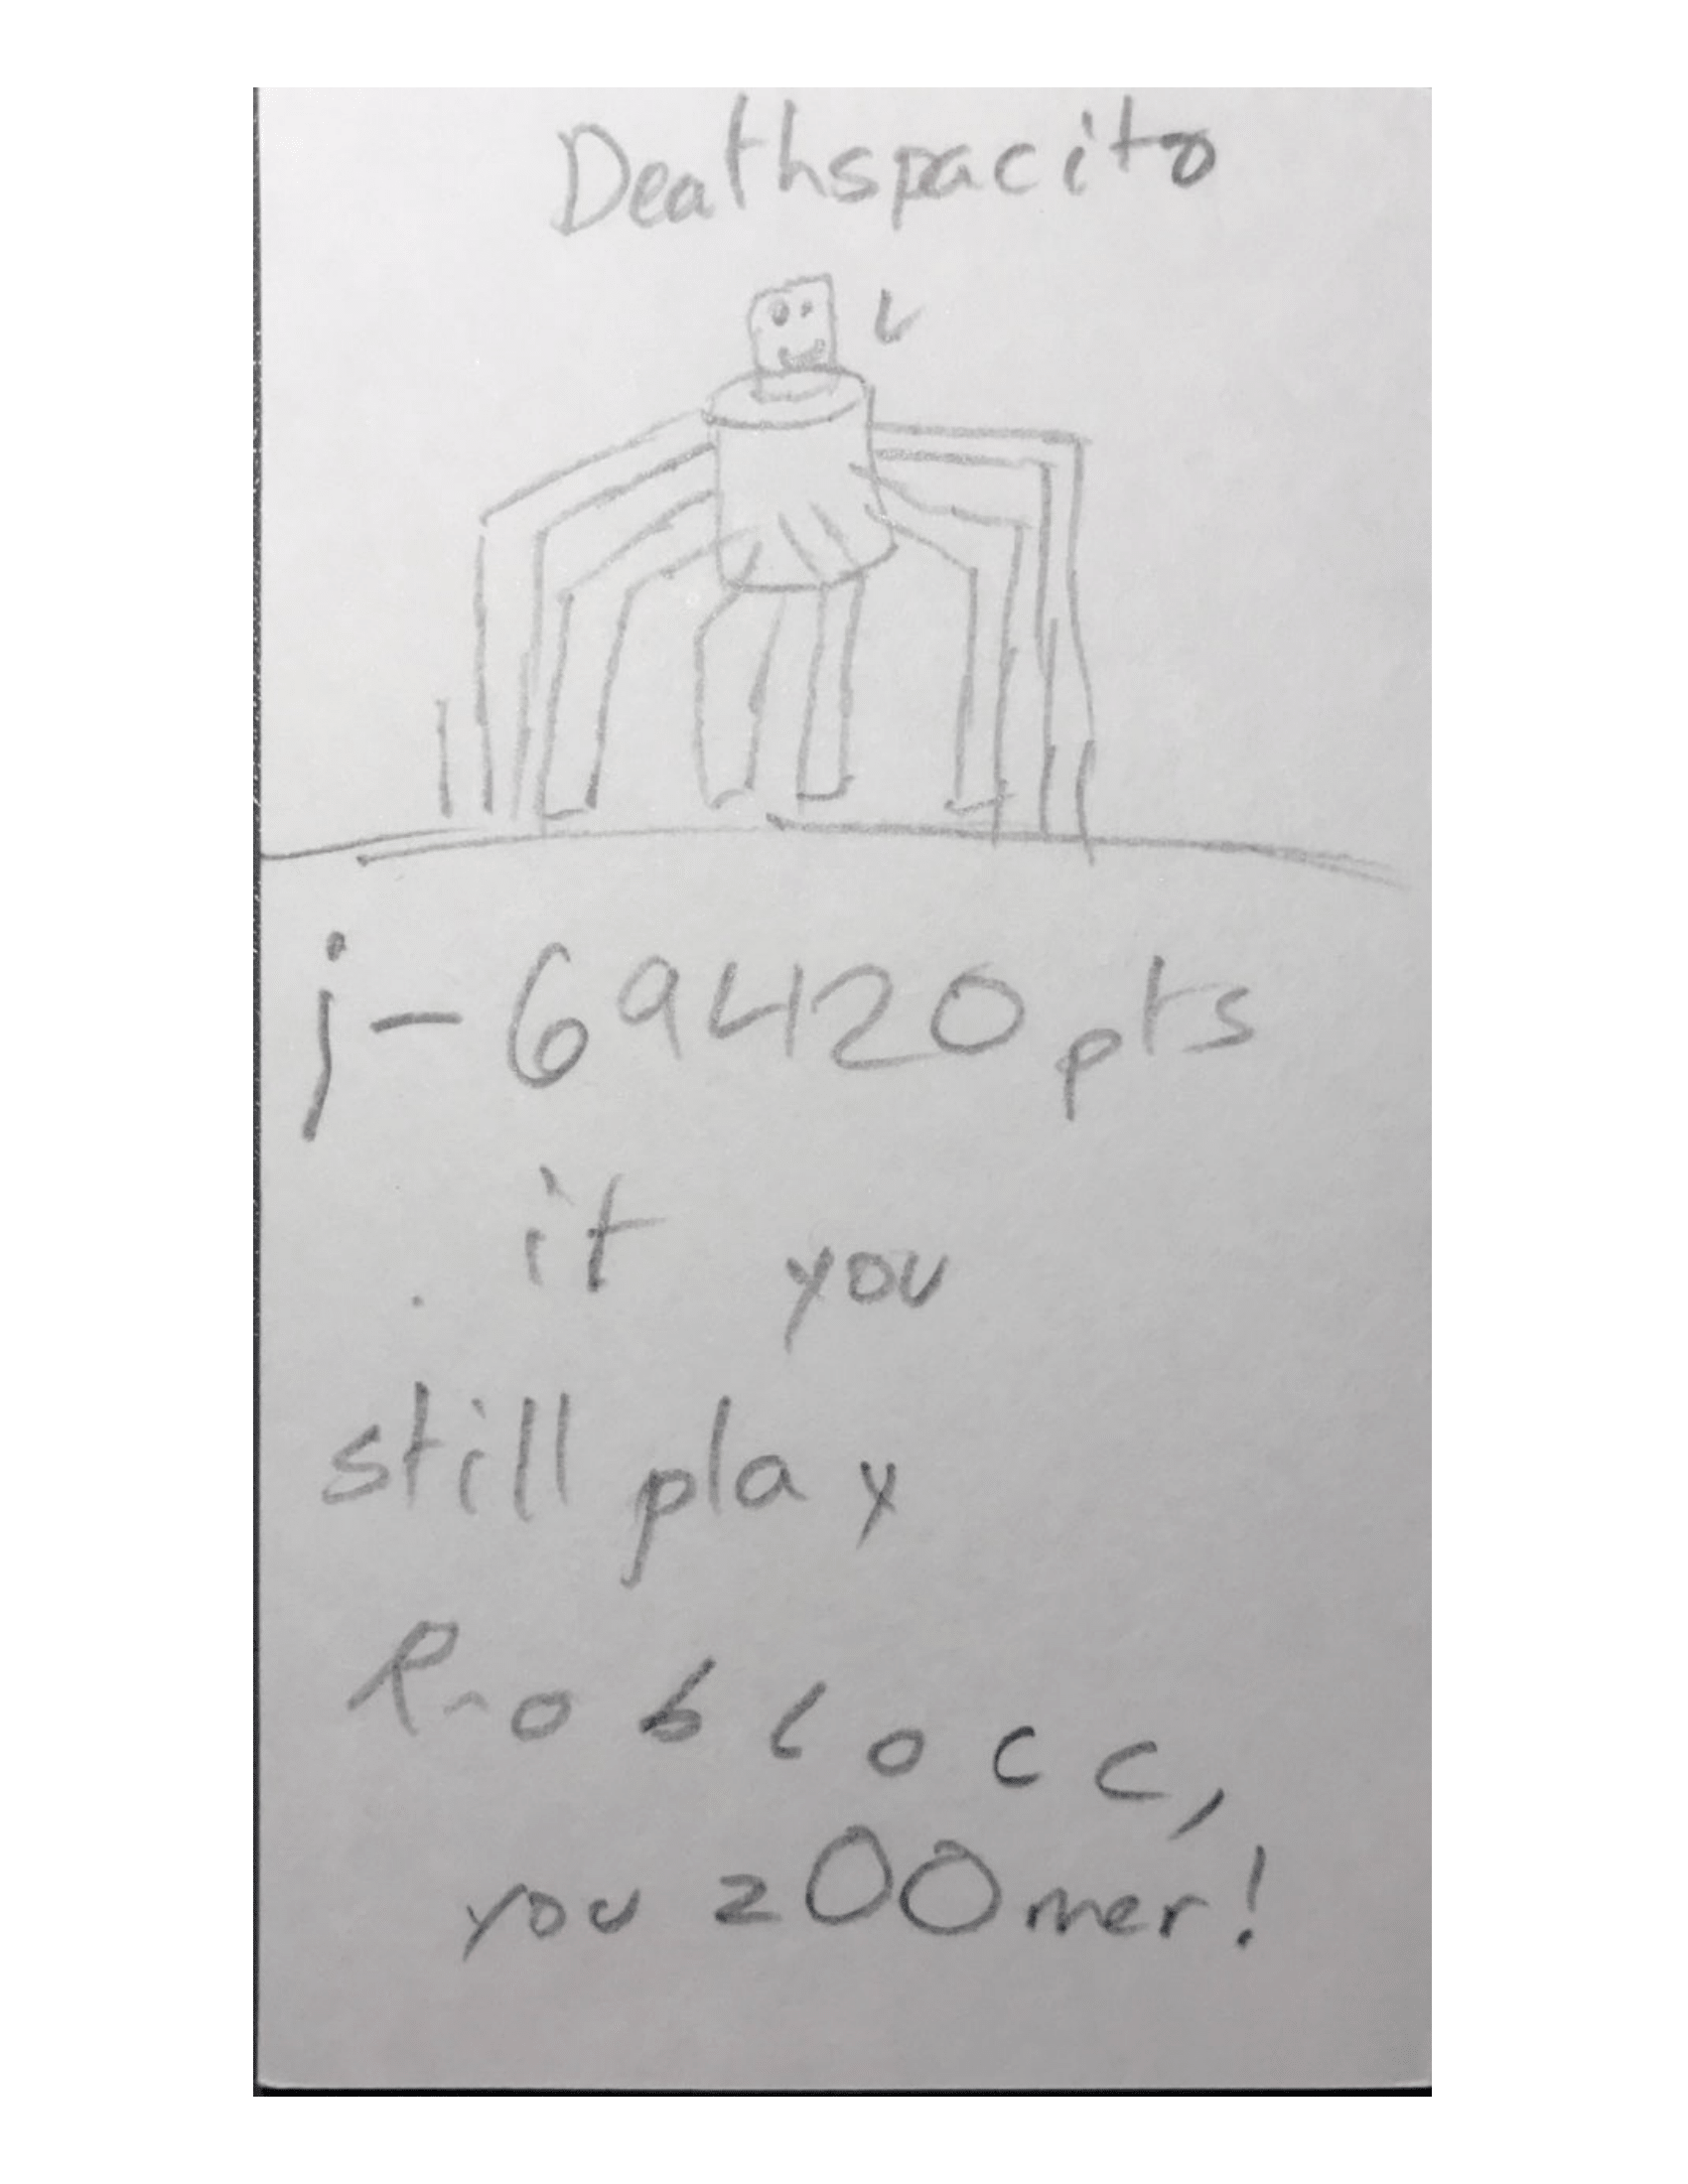 Deathspacito
j-69420 pts
if you
still play
Roblocc,
you zOOmer!